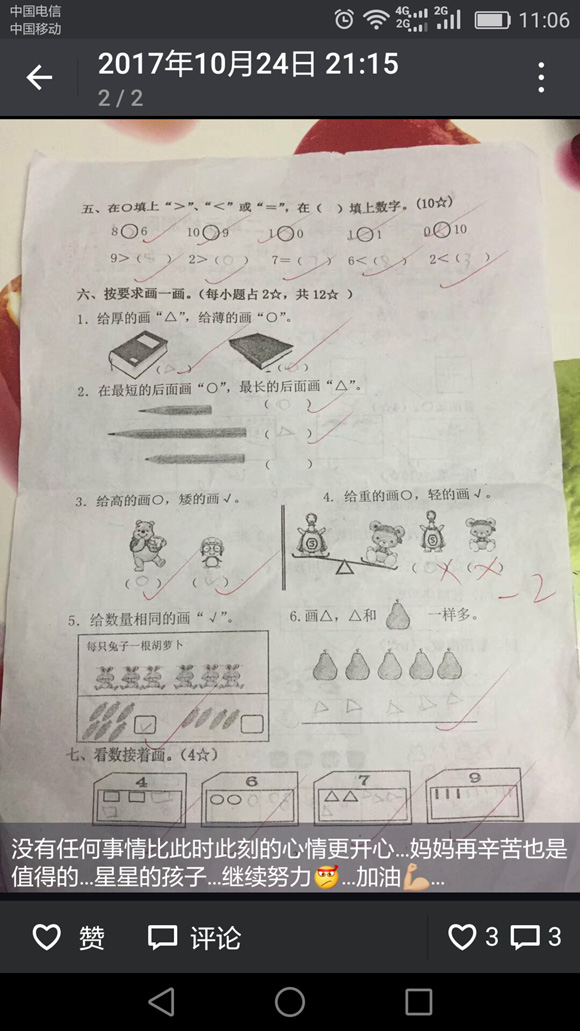 中国电信
中国移动
4G
2G
2G
11:06
2017年10月24日 21:15
2 / 2
五、在○填上“>”、“<”或“=”，在（ ）填上数字。(10☆)
8○6 10○9 1○0 1○1 0○10
9>( ) 2>(0) 7=(7) 6<(8) 2<(3)
六、按要求画一画。(每小题占2☆，共12☆ )
1. 给厚的画“△”，给薄的画“○”。
(△) (○)
2. 在最短的后面画“○”，最长的后面画“△”。
(○)
(△)
( )
3. 给高的画○，矮的画√。
4. 给重的画○，轻的画√。
(○) (√)
(○) (√)
-2
5. 给数量相同的画“√”。
6.画△，△和 一样多。
每只兔子一根胡萝卜
七、看数接着画。(4☆)
4 6 7 9
没有任何事情比此时此刻的心情更开心...妈妈再辛苦也是
值得的...星星的孩子...继续努力...加油...
赞 评论 3 3